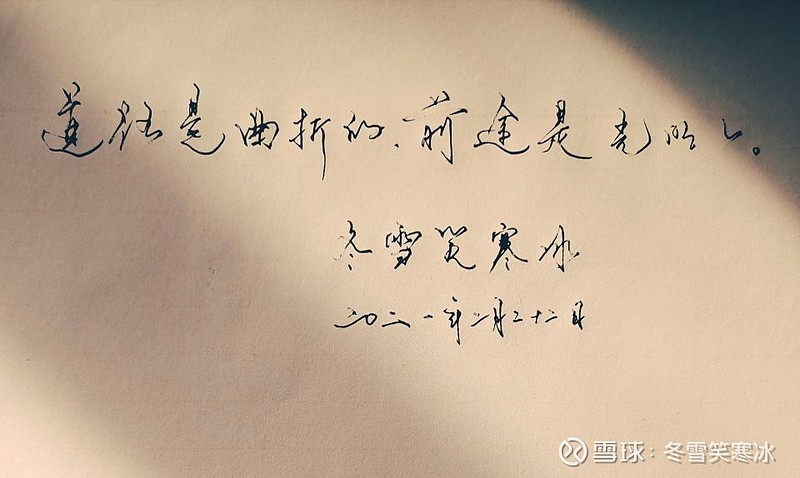 道路是曲折的,前途是光明的。
冬雪笑寒冰
二〇二一年二月二十二日
雪球:冬雪笑寒冰